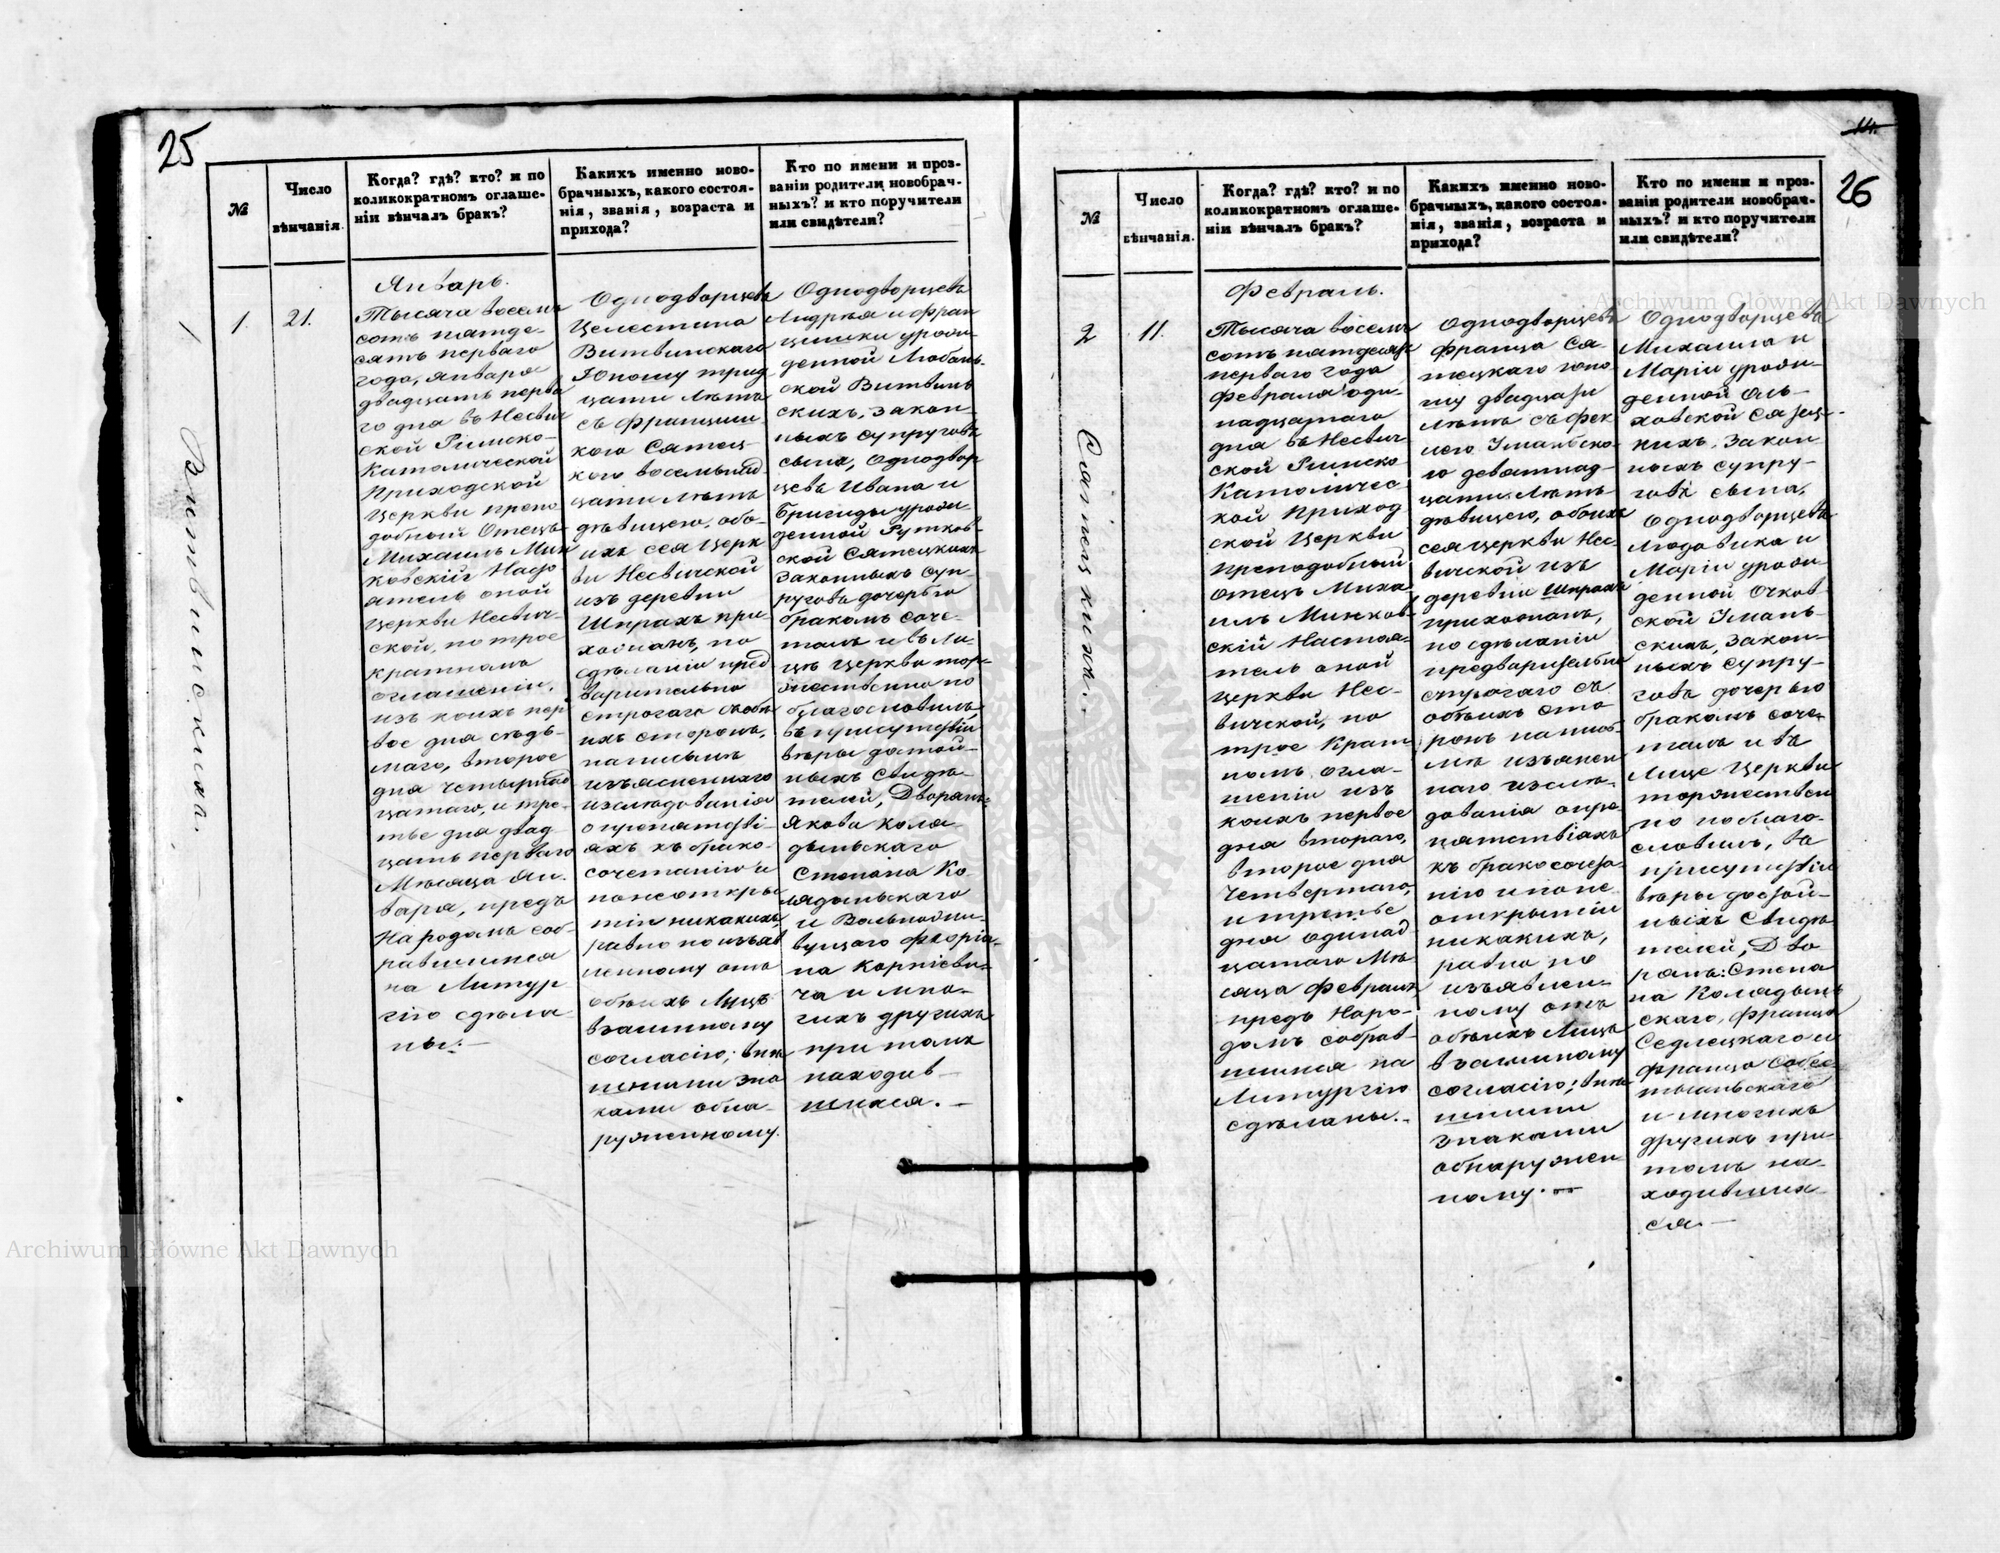 25
№
Число
вѣнчанія.
Когда? гдѣ? кто? и по
коликократномъ оглаше-
ніи вѣнчалъ бракъ?
Какихъ именно ново-
брачныхъ, какого состоя-
нія, званія, возраста и
прихода?
Кто по имени и проз-
ваніи родители новобрач-
ныхъ? и кто поручители
или свидѣтели?
1
Витвинскихъ.
1.
21.
Январь.
Тысяча восемь
сотъ пятьде-
сятъ перваго
года, января
двадцать перва
го дня въ Несвич
ской Римско-
Католической
Приходской
Церкви препо
добный Отецъ
Михаилъ Мин
ковскій Насто
ятель оной
Церкви Несвич-
ской, по трое
кратномъ
оглашеніи,
изъ коихъ пер
вое дня седь-
маго, второе
дня четырнад
цатаго, и тре-
тье дня двад
цать перваго
Мѣсяца Ян-
варя, предъ
Народомъ соб-
равшимся
на Литур
гію сдѣла-
ны.—
Однодворцевъ
Целестина
Витвинскаго
Юношу трид
цати лѣтъ
съ Францишк
кою Сятец-
кого восемьнад
цати лѣтъ
дѣвицею, обо-
ихъ сея Церк
ви Несвичской
изъ деревни
Шпрахъ при-
хожанъ, по
сдѣланіи пред
варительно
строгаго съ обѣ
ихъ сторонъ,
на письмѣ
изъясненнаго
изслѣдованія
о препятстві-
яхъ къ брако-
сочетанію и
по неоткры
тіи никакихъ,
равно по изъяв
ленному отъ
обѣихъ Лицъ
взаимному
согласію, внѣ
шними зна
ками обна-
руженному.
Однодворцевъ
Андрея и Фран
цишки урож-
денной Любань-
ской Витвин
скихъ, закон-
ныхъ супруговъ
сына, Однодвор
цевъ Ивана и
Бригиды урож
денной Рутков-
ской Сятецкихъ
законныхъ суп-
руговъ дочерью
бракомъ соче-
талъ и въ Ли-
цѣ Церкви тор-
жественно по
благословилъ
въ присутствіи
вѣры достой-
ныхъ Свидѣ-
телей, Дворянъ:
Якова Коля-
дынскаго
Степана Ко-
лядынскаго
и Вольножи-
вущаго Флорія-
на Корнѣеви-
ча и мно-
гихъ другихъ
при томъ
находив-
шихся.—
14.
26
№
Число
вѣнчанія.
Когда? гдѣ? кто? и по
коликократномъ оглаше-
ніи вѣнчалъ бракъ?
Какихъ именно ново-
брачныхъ, какого состоя-
нія, званія, возраста и
прихода?
Кто по имени и проз-
ваніи родители новобрач-
ныхъ? и кто поручители
или свидѣтели?
Сятецкихъ.
2
11.
Февраль.
Тысяча восемь
сотъ пятьдесятъ
перваго года
Февраля оди-
надцатаго
дня въ Несвич
ской Римско
Католичес
кой Приход
ской Церкви
Преподобный
Отецъ Миха-
илъ Минков-
скій Настоя-
тель оной
Церкви Нес-
вичской, по
трое крат
номъ огла-
шеніи изъ
коихъ первое
дня втораго,
второе дня
Четвертаго,
и третье
дня одинад
цатаго Мѣ-
сяца Февраля,
предъ Наро-
домъ собрав-
шимся на
Литургію
сдѣланы.—
Однодворцевъ
Франца Ся-
тецкаго юно-
шу двадцати
лѣтъ съ Фек
лею Уманьско-
ю девятнад-
цати лѣтъ
дѣвицею, обоихъ
сея церкви Нес-
вичской изъ
деревни Шпрахъ
прихожанъ,
по сдѣланіи
предварительно
строгаго съ
обѣихъ сто
ронъ на пись
мѣ изъяснен
наго изслѣ-
дованія о пре
пятствіяхъ
къ бракосочета-
нію и по не
открытіи
никакихъ,
равно по
изъявлен-
ному отъ
обѣихъ Лицъ
взаимному
согласію; внѣ
шними
знаками
обнаружен
ному.—
Однодворцевъ
Михаила и
Маріи урож-
денной Оль-
ховской Сятец-
кихъ, закон
ныхъ супру-
говъ сына,
Однодворцевъ
Людовика и
Маріи урож-
денной Очков
ской Умань-
скихъ, закон-
ныхъ супру-
говъ дочерью
бракомъ соче-
талъ и въ
Лице Церкви
торжествен
но поблаго-
словилъ, въ
присутствіи
вѣры достой-
ныхъ Свидѣ
телей, Дво
рянъ: Степа
на Колядын
скаго, Франца
Седлецкаго и
Франца Собес-
тыанскаго
и многихъ
другихъ при
томъ на-
ходившихъ
ся.—
Archiwum Główne Akt Dawnych
Archiwum Główne Akt Dawnych